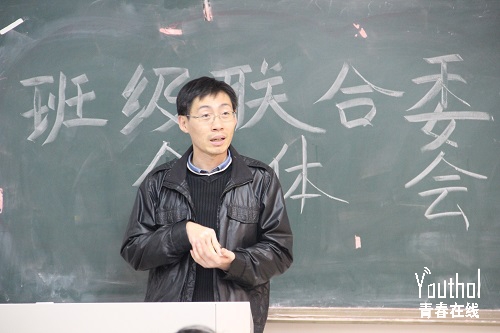 班级联合委
全体会
Youthol
青春在线